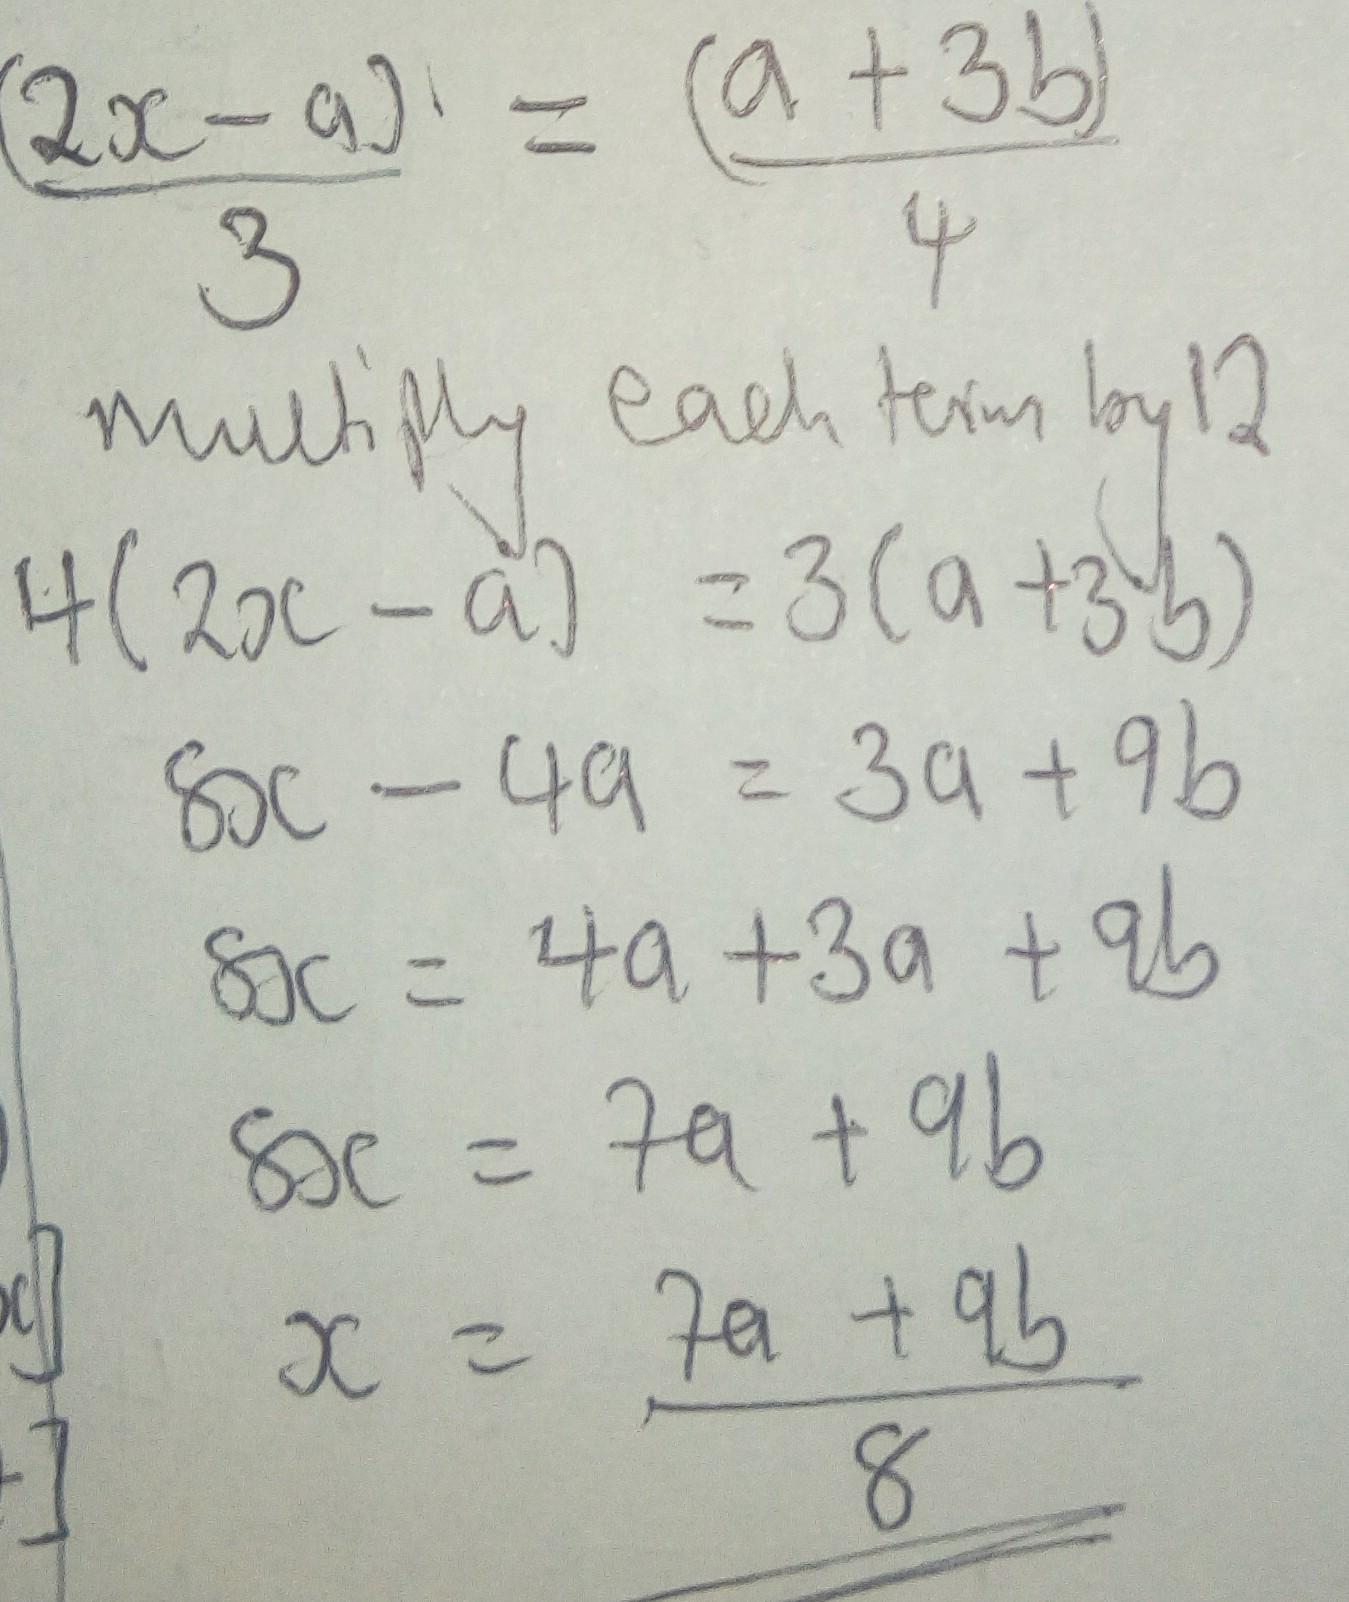 (2x - a) = (a + 3b)
3 4
multiply each term by 12
4(2x - a) = 3(a + 3b)
8x - 4a = 3a + 9b
8x = 4a + 3a + 9b
8x = 7a + 9b
x = 7a + 9b
8
]
]